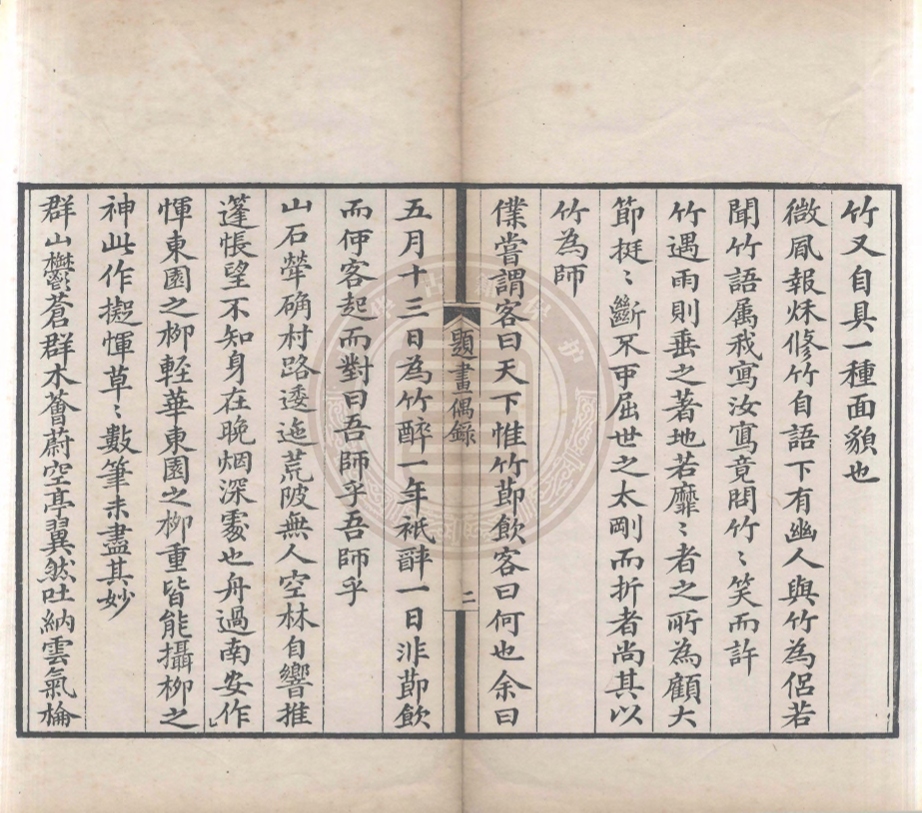 竹又自具一種面貌也
微風報秌修竹自語下有幽人與竹為侶若
聞竹語属我寫汝寫竟問竹〻笑而許
竹遇雨則垂之著地若靡〻者之所為顧大
節挺〻斷不甲屈世之太剛而折者尚其以
竹為師
僕嘗謂客曰天下惟竹節飲客曰何也余曰
題畫偶錄
二
五月十三日為竹醉一年祇醉一日非節飲
而何客起而對曰吾師乎吾師乎
山石犖确村路逶迤荒陂無人空林自響推
蓬悵望不知身在晚烟深處也舟過南安作
惲東園之柳輕華東園之柳重皆能攝柳之
神此作擬惲草〻數筆未盡其妙
群山欝蒼群木薈蔚空亭翼然吐納雲氣棆